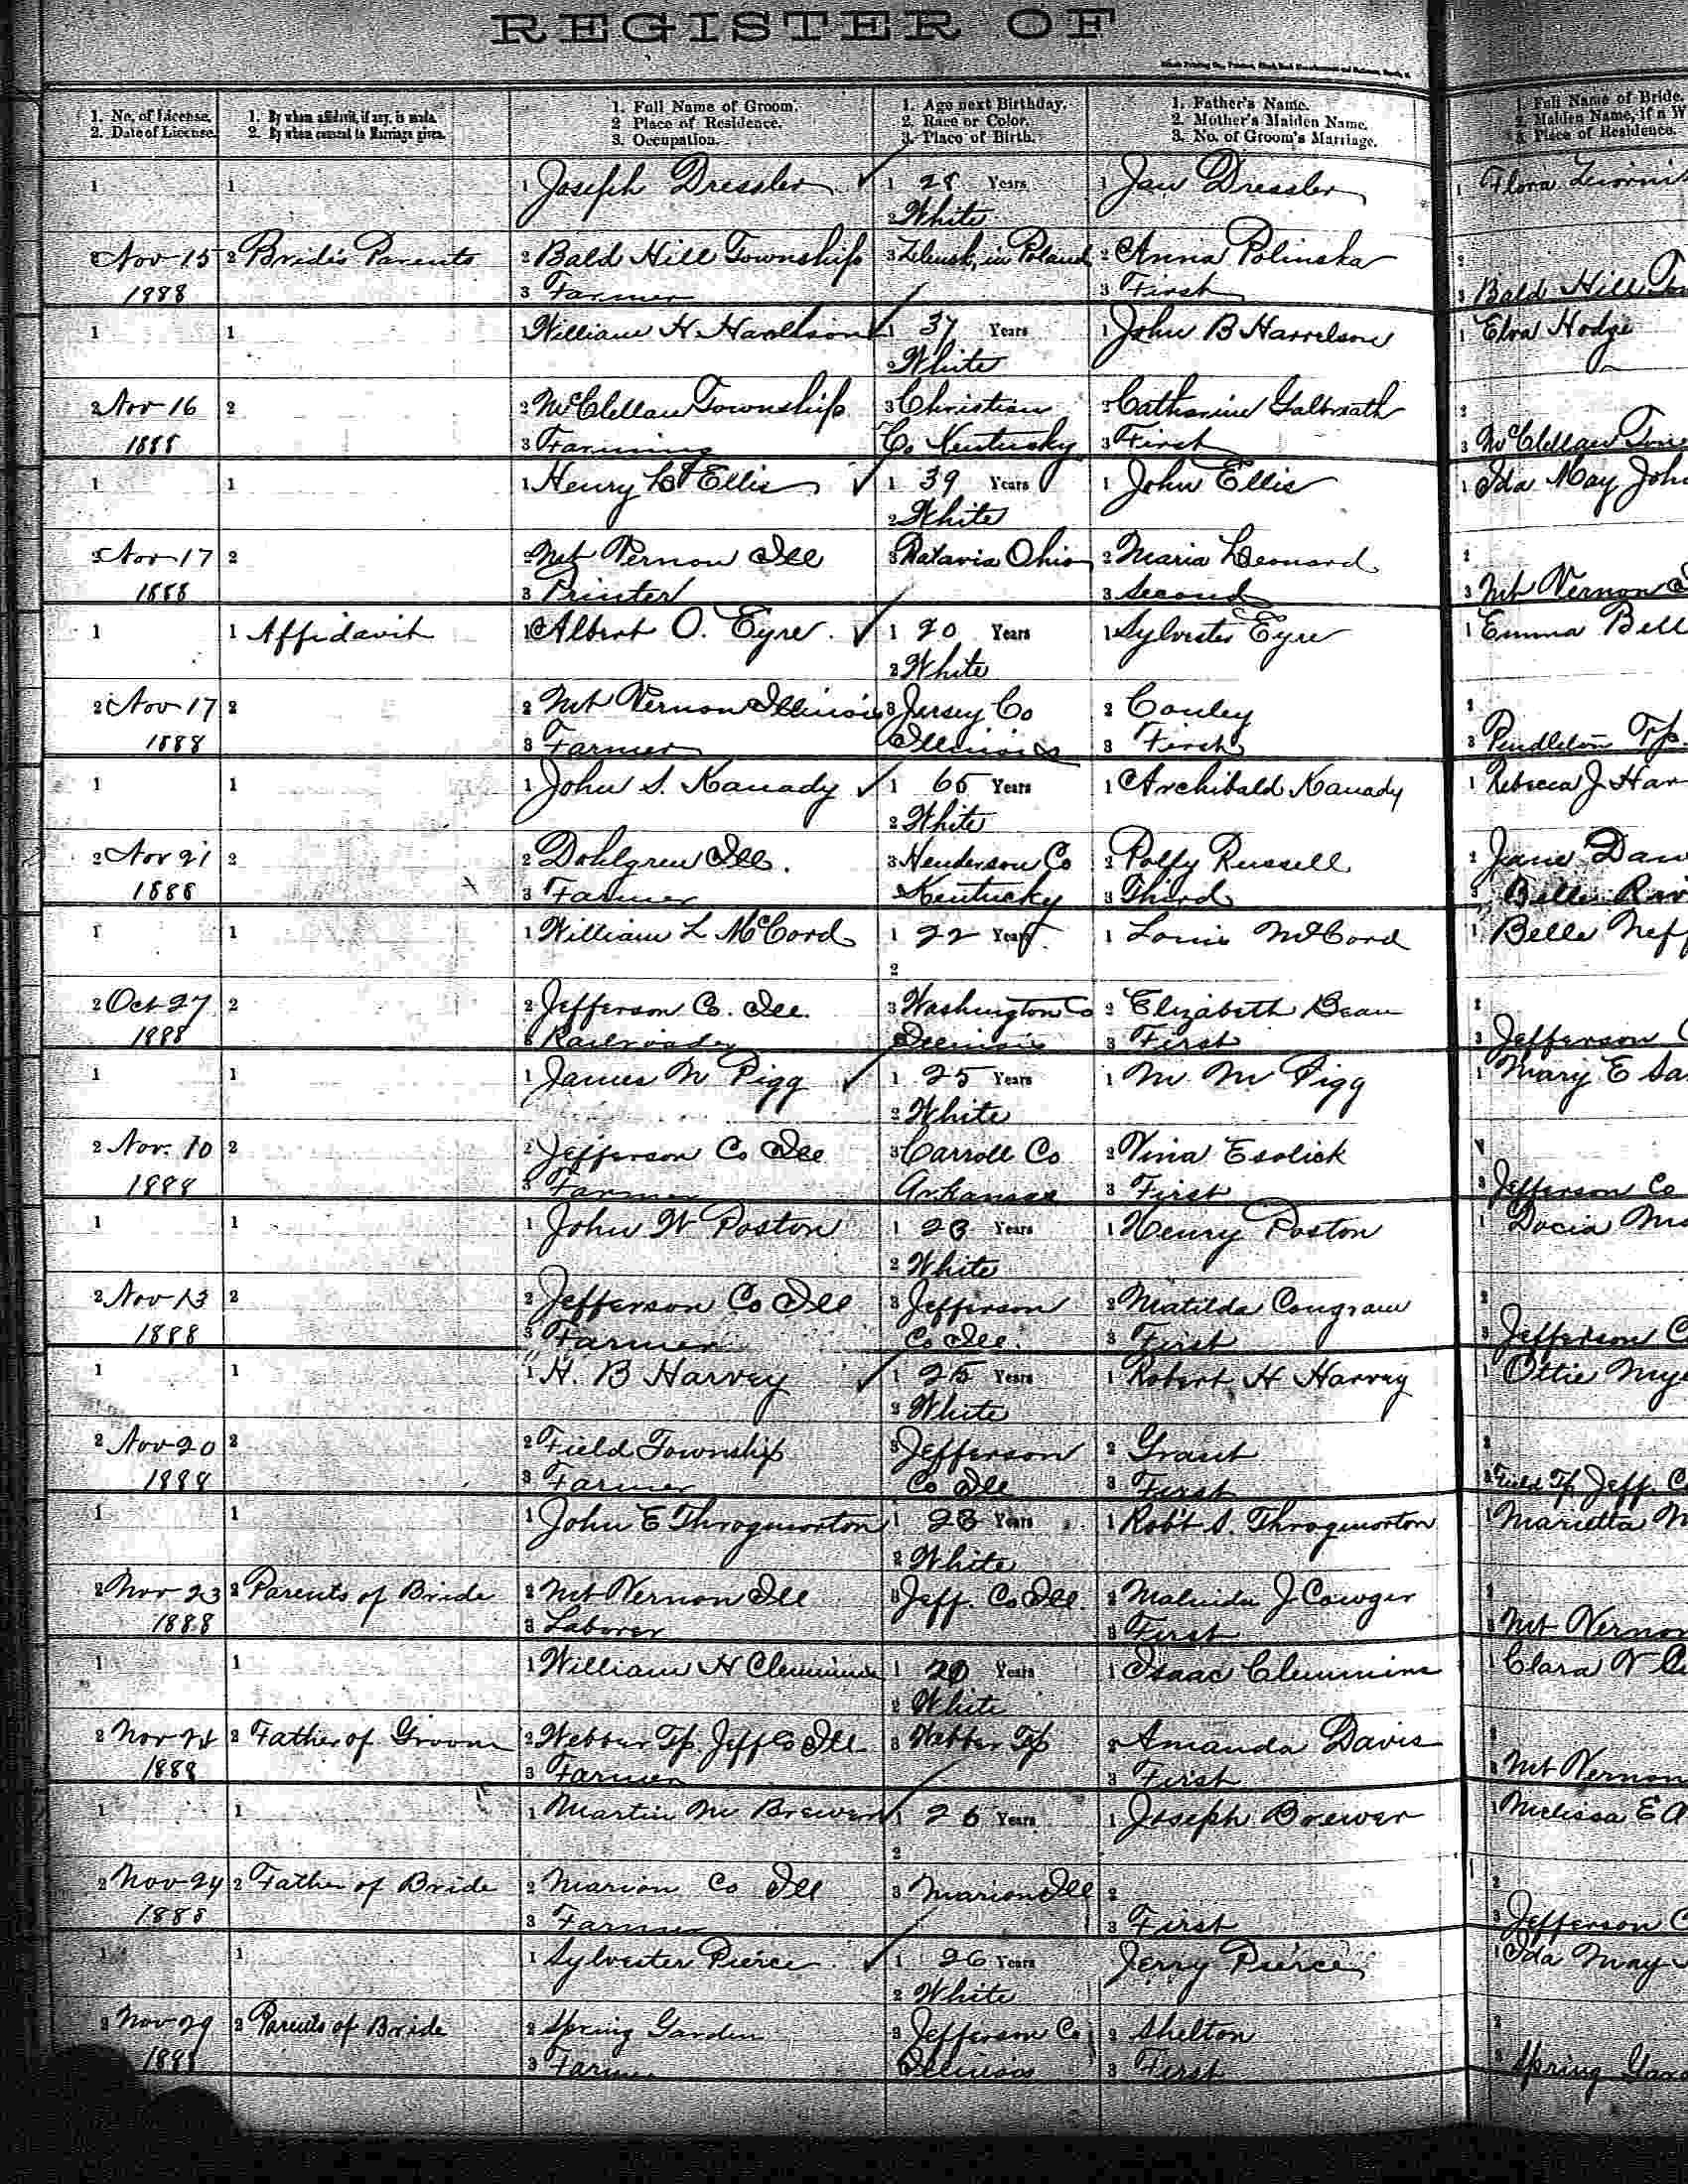 REGISTER OF
1. No. of License.
2. Date of License.
1. By whom affidavit, if any, is made.
2. By whom consent to Marriage given.
1. Full Name of Groom.
2 Place of Residence.
3. Occupation.
1. Age next Birthday.
2. Race or Color.
3. Place of Birth.
1. Father's Name.
2. Mother's Maiden Name.
3. No. of Groom's Marriage.
1. Full Name of Bride.
2. Maiden Name, if a W
3. Place of Residence.
1 1 1 Joseph Dressler 1 28 Years 1 Jau Dressler 1 Flora
2 White
2 Nov 15 2 Bride's Parents 2 Bald Hill Township 3 in Poland 2 Anna Polinska 2
1988 3 Farmer 3 First 3 Bald Hill
1 1 1 William H. Harrelson 1 37 Years 1 John B Harrelson 1 Elva Hodge
2 White
2 Nov 16 2 2 McClellan Township 3 Christian 2 Catharine Galbreath 2
1888 3 Farming Co Kentucky 3 First 3 McClellan Tow
1 1 1 Henry Ellis 1 39 Years 1 John Ellis 1 Ida May John
2 White
2 Nov 17 2 2 Mt Vernon Ill 3 Batavia Ohio 2 Maria Leonard 2
1888 3 Printer 3 Second 3 Mt Vernon
1 1 Affidavit 1 Albert O. Eyre. 1 20 Years 1 Sylvester Eyre 1 Emma Bell
2 White
2 Nov 17 2 2 Mt Vernon Illinois 3 Jersey Co 2 Couley 2
1888 3 Farmer Illinois 3 First 3 Pendleton Tp.
1 1 1 John S. Kanady 1 65 Years 1 Archibald Kanady 1 Rebecca J Har
2 White
2 Nov 21 2 2 Dohlgren Ill. 3 Henderson Co 2 Polly Russell 2 Jane Daw
1888 3 Farmer Kentucky 3 Third 3 Belle Riv
1 1 1 William L McCord 1 22 Years 1 Louis McCord 1 Belle Neff
2
2 Oct 27 2 2 Jefferson Co. Ill. 3 Washington Co 2 Elizabeth Bean 2
1888 3 Railroader Illinois 3 First 3 Jefferson C
1 1 1 James N Pigg 1 25 Years 1 M M Pigg 1 Mary E Sa
2 White
2 Nov. 10 2 2 Jefferson Co Ill 3 Carroll Co 2 Vina Eslick 2
1888 3 Farmer Arkansas 3 First 3 Jefferson Co
1 1 1 John W Poston 1 23 Years 1 Henry Poston 1 Docia Mc
2 White
2 Nov 13 2 2 Jefferson Co Ill 3 Jefferson 2 Matilda Congraw 2
1888 3 Farmer Co Ill. 3 First 3 Jefferson C
1 1 1 H. B Harvey 1 25 Years 1 Robert H Harvey 1 Ottie Mye
2 White
2 Nov 20 2 2 Field Township 3 Jefferson 2 Grant 2
1888 3 Farmer Co Ill 3 First 3 Field Tp Jeff. C
1 1 1 John E Throgmorton 1 23 Years 1 Rob't S. Throgmorton 1 Marietta M
2 White
2 Nov 23 2 Parents of Bride 2 Mt Vernon Ill 3 Jeff. Co Ill. 2 Malinda J Cowger 2
1888 3 Laborer 3 First 3 Mt Vernon
1 1 1 William H Clemmins 1 20 Years 1 Isaac Clemmins 1 Clara
2 White
2 Nov 24 2 Father of Groom 2 Webber Tp. Jeff Co Ill 3 Webber Tp 2 Amanda Davis 2
1888 3 Farmer 3 First 3 Mt Vernon
1 1 1 Martin M Brewer 1 26 Years 1 Joseph Brewer 1 Melissa E A
2
2 Nov 24 2 Father of Bride 2 Marion Co Ill 3 Marion Ill 2 2
1888 3 Farmer 3 First 3 Jefferson C
1 1 1 Sylvester Pierce 1 26 Years Jerry Pierce 1 Ida May
2 White
2 Nov 29 2 Parents of Bride 2 Spring Garden 3 Jefferson Co 2 Shelton 2
1888 3 Farmer Illinois 3 First 3 Spring Gard